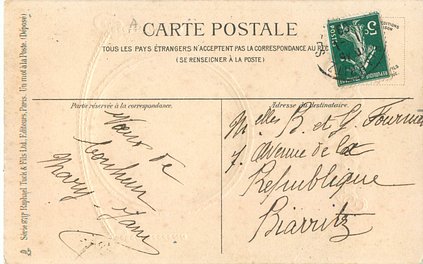 CARTE POSTALE
TOUS LES PAYS ÉTRANGERS N'ACCEPTENT PAS LA CORRESPONDANCE AU
(SE RENSEIGNER À LA POSTE)
Partie réservée à la correspondance.
Adresse du destinataire.
Vœux de
bonheur
Mary-Jane
Melles B. et Y. Fournier
7. Avenue de la
République
Biarritz
Raphael Tuck & Fils Ltd., Editeurs, Paris. Un mot à la Poste. (Déposé)
5c